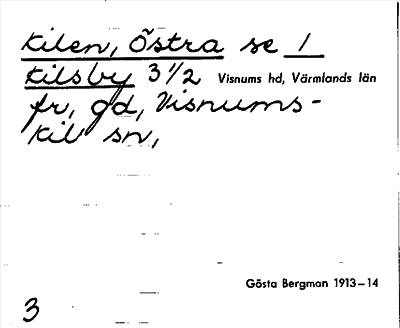 Kilen, Östra se 1
Kilsby 3 1/2 Visnums hd, Värmlands län
fr, gd, Visnums-
kil sn,
Gösta Bergman 1913–14
3